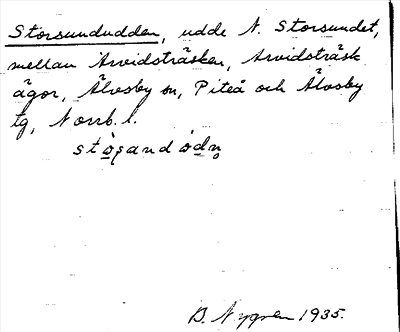 Storsundudden, udde N. Storsundet,
mellan Arvidsträsken, Arvidsträsk
ägor, Älvsby sn, Piteå och Älvsby
tg, Norrb. l.
stò̱ʂandò̱dn̥
B. Nygren 1935.